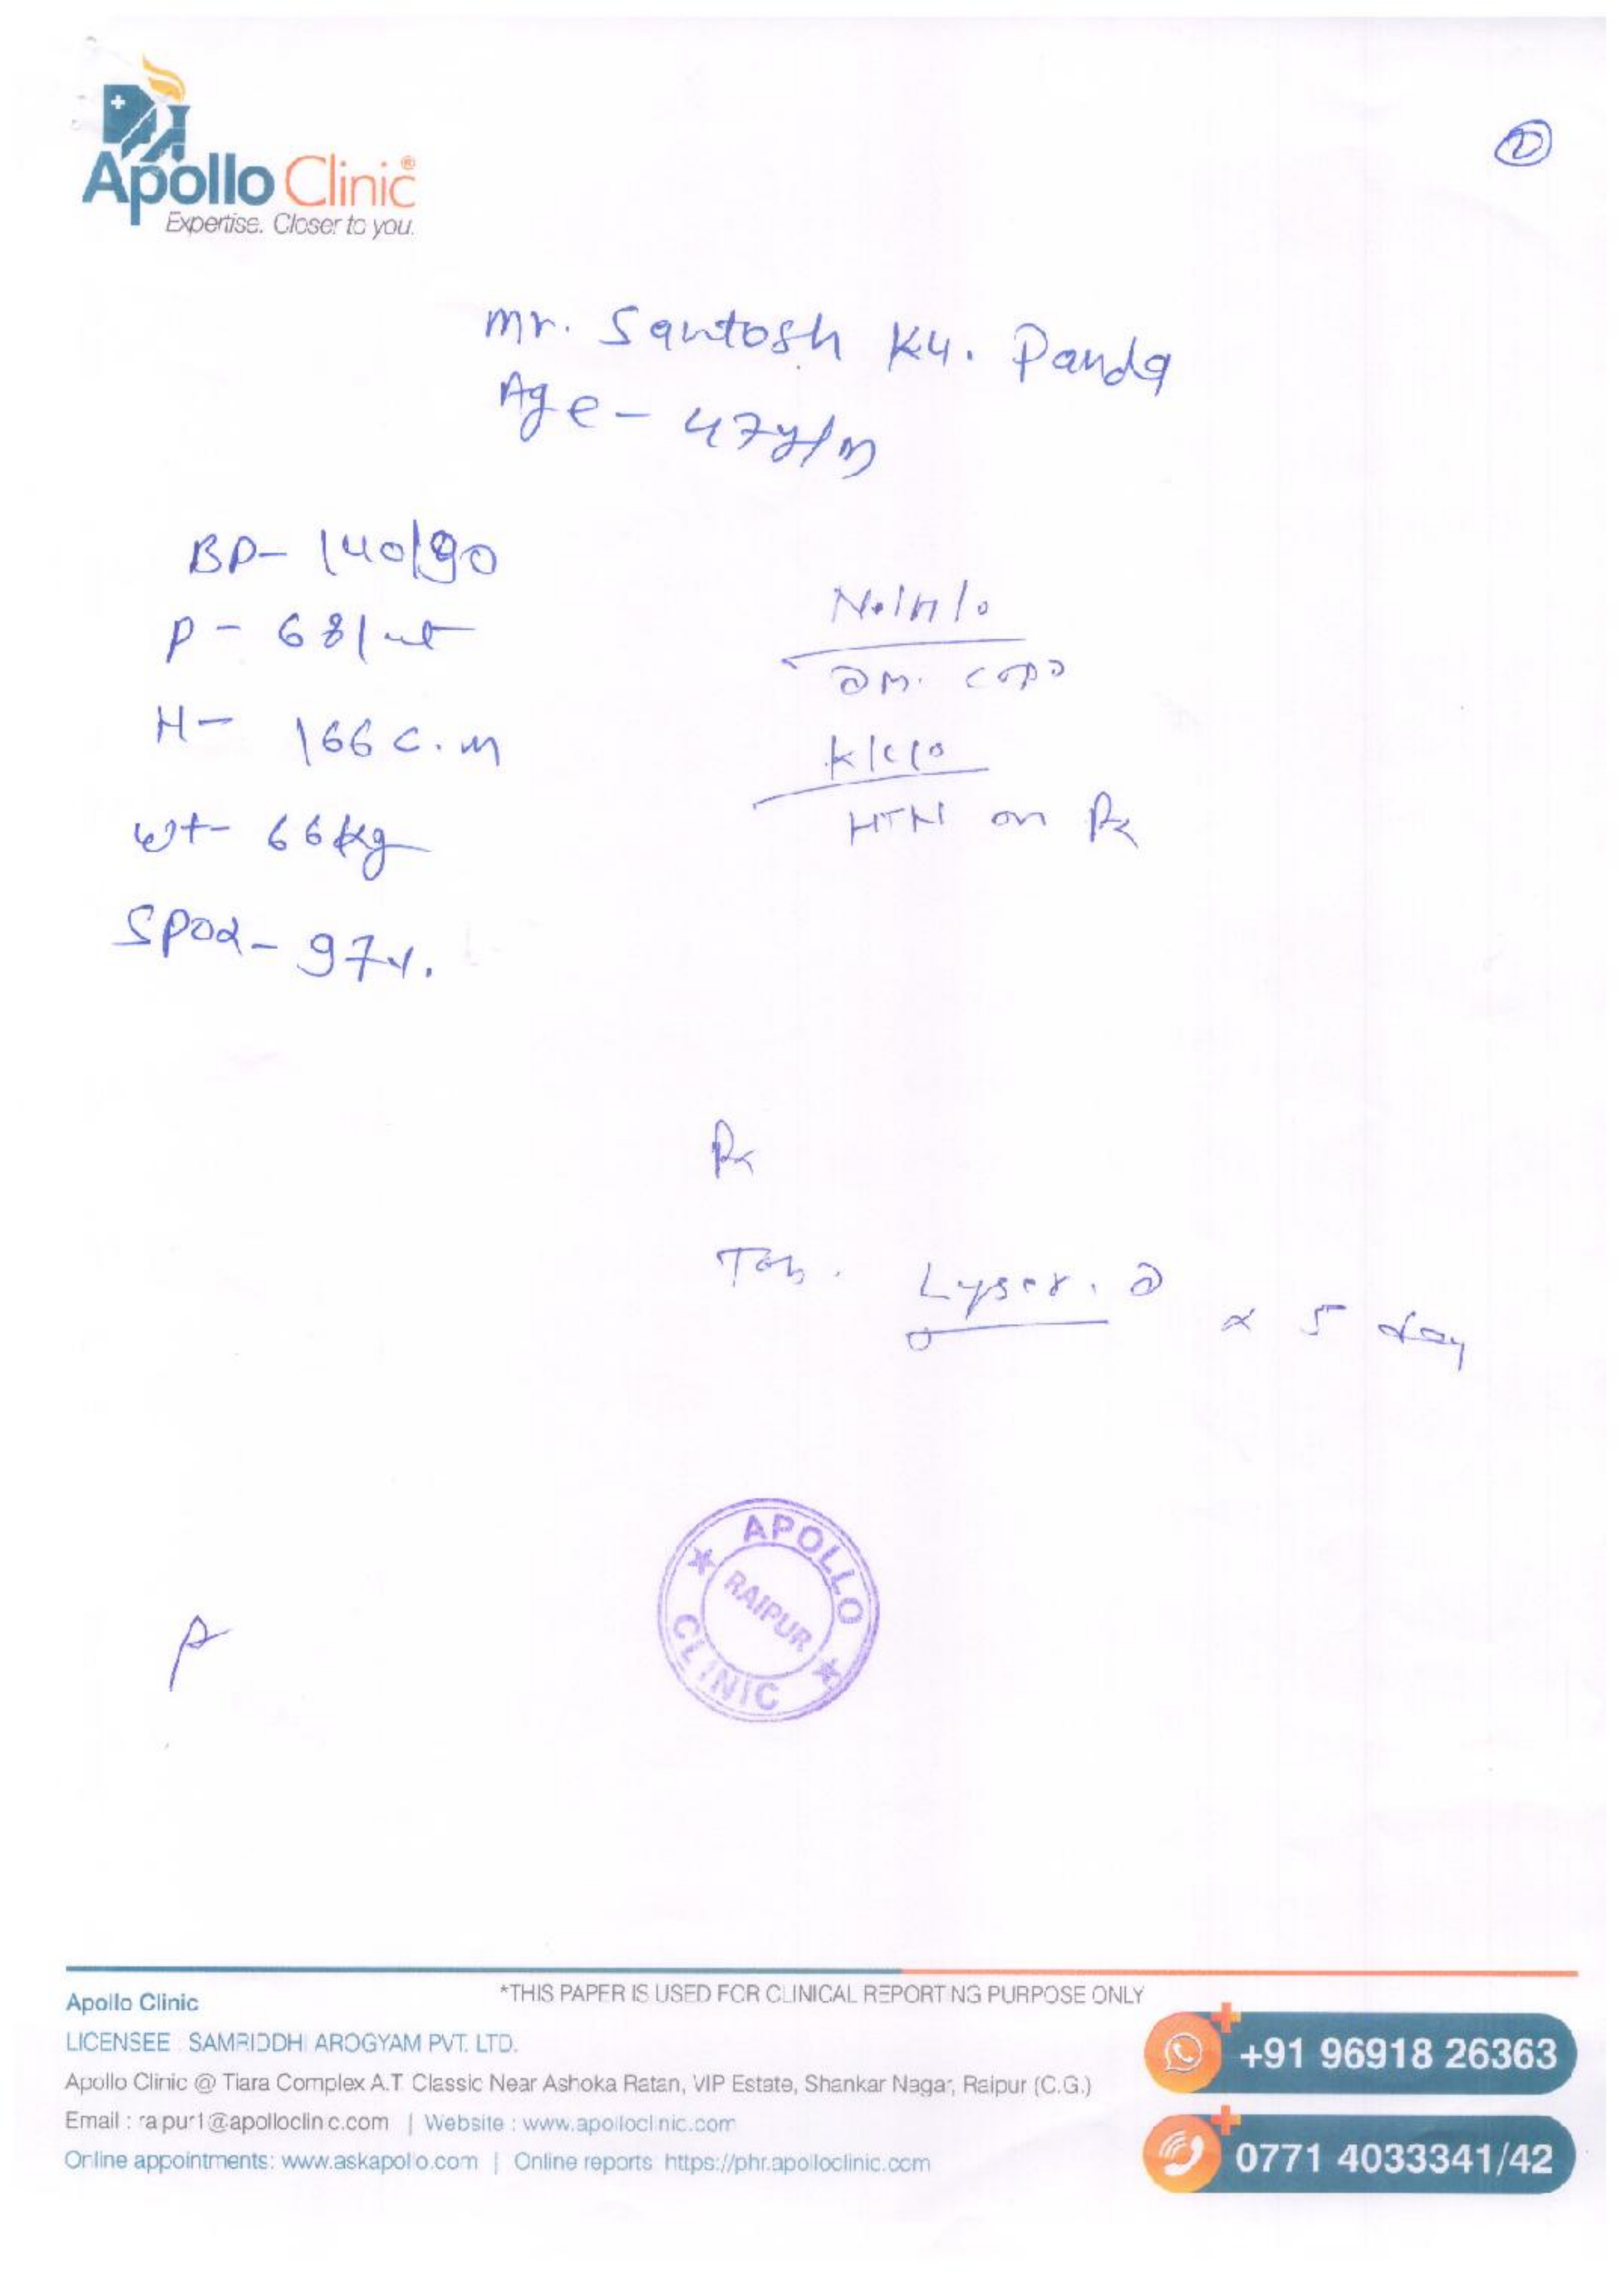 Apollo Clinic®
Expertise. Closer to you.
Mr. Santosh Ku. Panda
Age - 47y/m
BP- 140/90
P - 68/mt
H- 166 c.m
wt- 66kg
SPO2- 97%.
N./H/o
DM. COPD
k/c/o
HTN on Rx
Rx
Tab. Lyser. D x 5 day
APOLLO CLINIC
RAIPUR
*THIS PAPER IS USED FOR CLINICAL REPORTING PURPOSE ONLY
Apollo Clinic
LICENSEE : SAMRIDDHI AROGYAM PVT. LTD.
Apollo Clinic @ Tiara Complex A.T. Classic Near Ashoka Ratan, VIP Estate, Shankar Nagar, Raipur (C.G.)
Email : raipur1@apolloclinic.com | Website : www.apolloclinic.com
Online appointments: www.askapollo.com | Online reports https://phr.apolloclinic.com
+91 96918 26363
0771 4033341/42